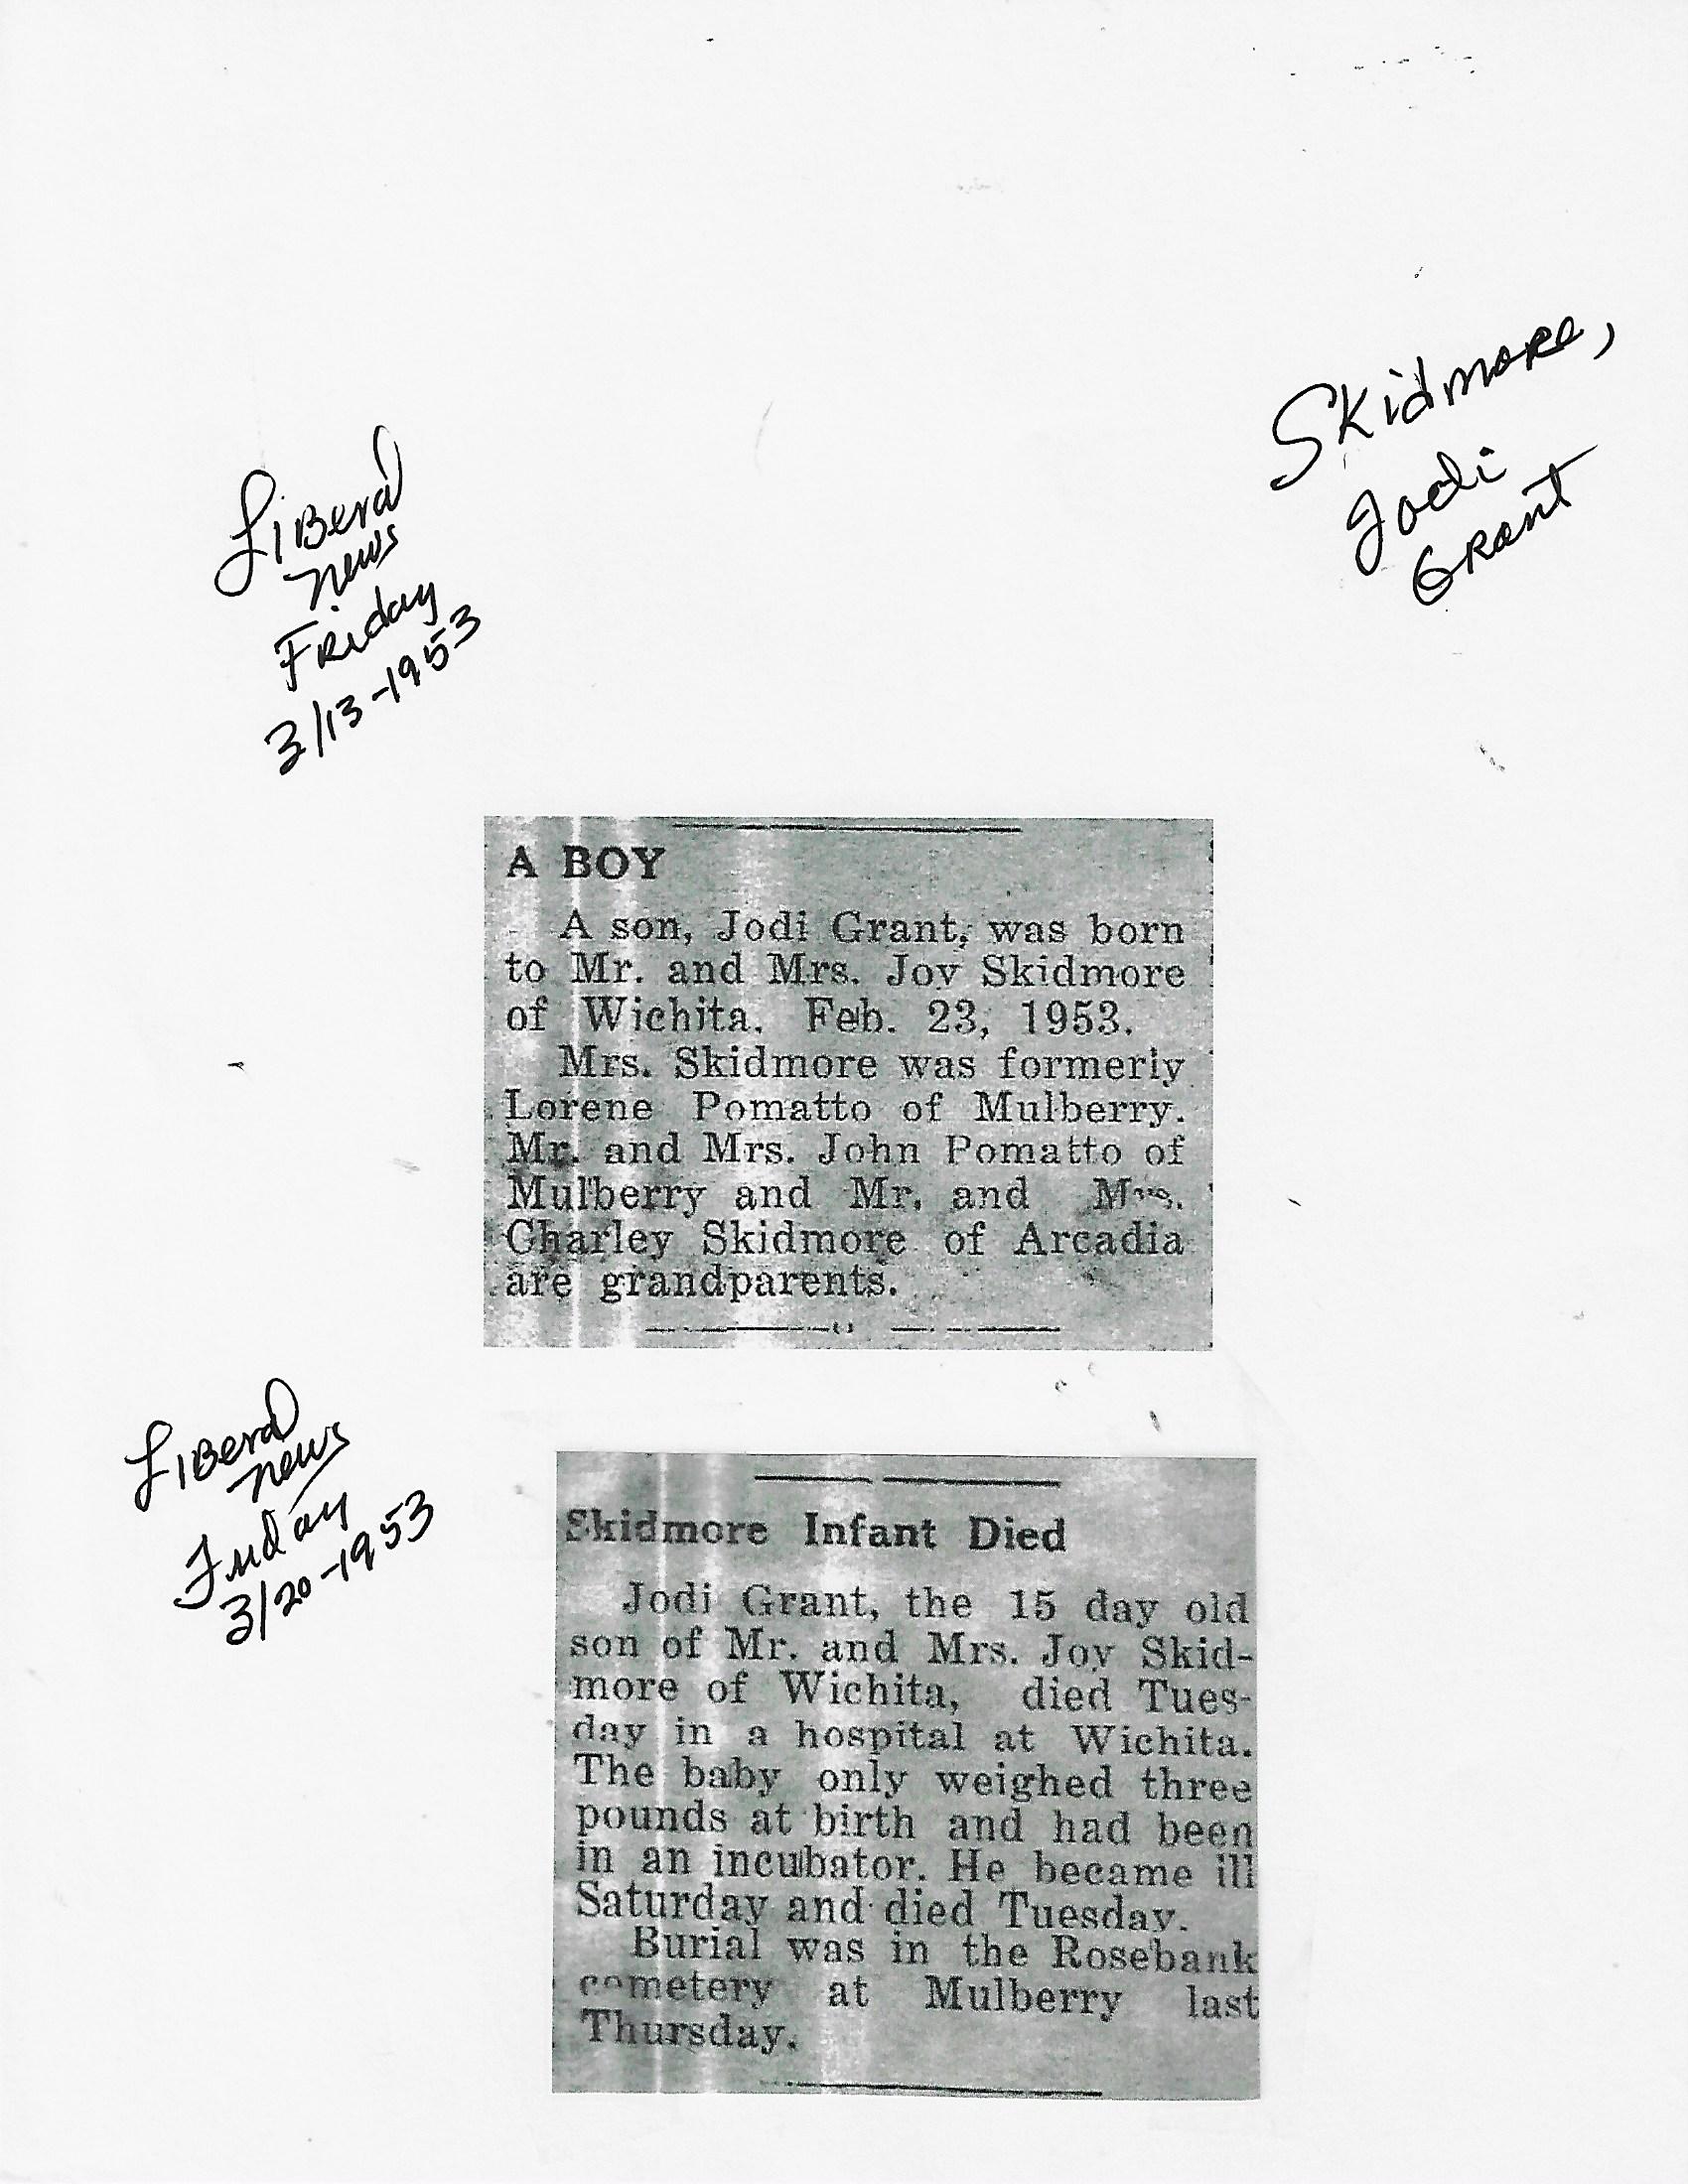 Skidmore,
Jodi
Grant
Liberal
News
Friday
3/13-1953
A BOY
A son, Jodi Grant, was born
to Mr. and Mrs. Joy Skidmore
of Wichita. Feb. 23, 1953.
Mrs. Skidmore was formerly
Lorene Pomatto of Mulberry.
Mr. and Mrs. John Pomatto of
Mulberry and Mr. and Mrs.
Charley Skidmore of Arcadia
are grandparents.
Liberal
News
Friday
3/20-1953
Skidmore Infant Died
Jodi Grant, the 15 day old
son of Mr. and Mrs. Joy Skid-
more of Wichita, died Tues-
day in a hospital at Wichita.
The baby only weighed three
pounds at birth and had been
in an incubator. He became ill
Saturday and died Tuesday.
Burial was in the Rosebank
cemetery at Mulberry last
Thursday.